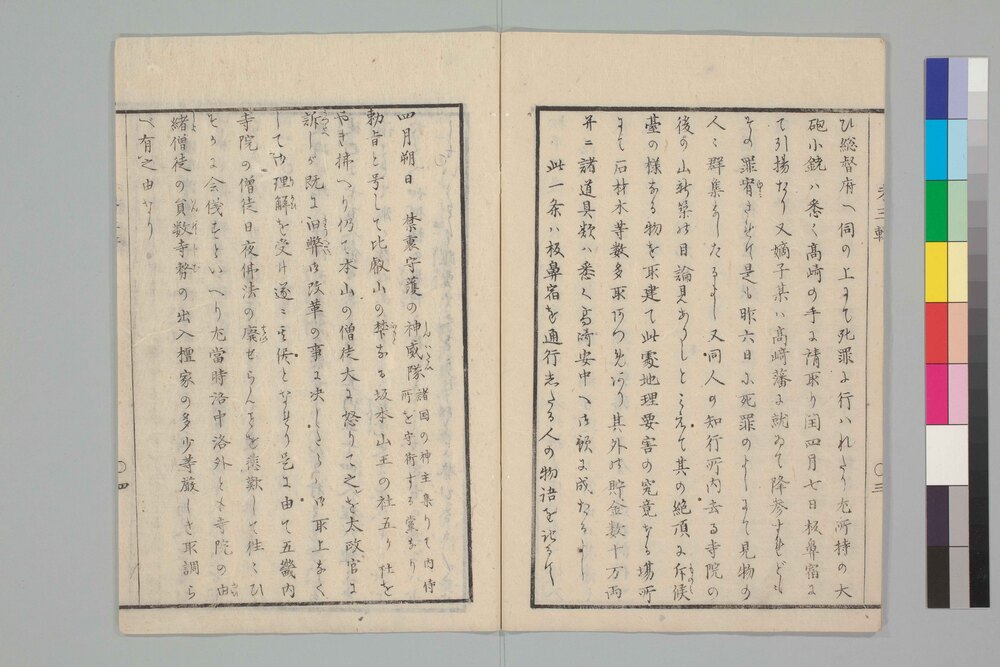 び総督府へ伺の上にて死罪に行ハれたり尤所持の大
砲小銃ハ悉く高崎の手に請取り閏四月七日板鼻宿に
て引揚たり又嫡子某ハ高崎藩に就ゐて降参すれども
その罪宥されず是も昨六日に死罪のよしにて見物の
人々群集なしたるよし又同人の知行所内去る寺院の
後の山新築の目論見ありしと見えて其の絶頂に斥候
臺の様なる物を取建て此處地理要害の究竟なる場所
にて石材木等数多取
其外
貯金数十万両
并ニ諸道具類ハ悉く高崎安中へ御預に成
此一条ハ板鼻宿を通行したる人の物語を記
○三
四月朔日 禁裏守護の神威隊 諸国の神主集りて内侍所を守衛する黨なり
勅旨と号して比叡山の禁なる坂本山王の社五ヶ社を
やき拂へり仍て本山の僧徒大に怒りて之を太政官に
訴しが既に旧弊御改革の事に決したる
御取上なく
して御理解を受け遂に
由て五畿内
寺院の僧徒日夜佛法の廃せられんを悲歎して
會議すといへり尤當時洛中洛外とも寺院の由
緒僧徒の員数寺勢の出入檀家の多少等厳しき取調ら
べ有之由なり
○四